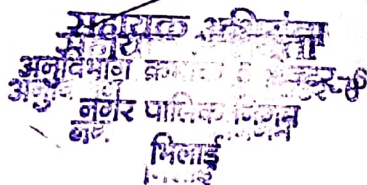 सहायक अभियंता
अनुविभाग क्रमांक
नगर पालिक निगम
भिलाई